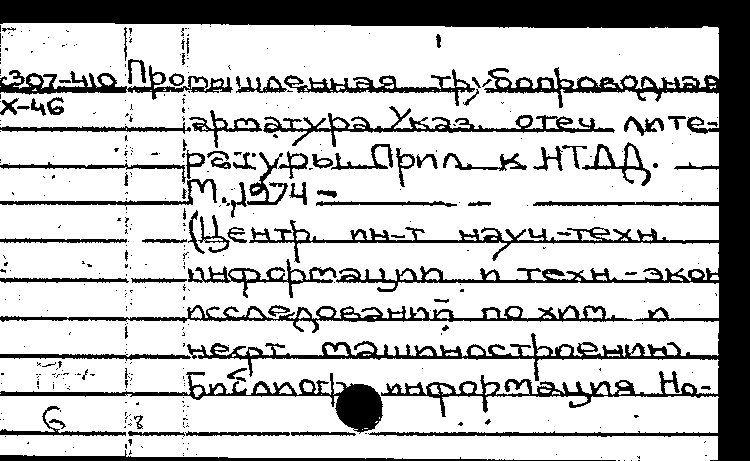 1
307-410 Промышленная трубопроводная
Х-46
арматура. Указ. отеч. лите-
ратуры. Прил. к НТДД.
М., 1974 –
(Центр. ин-т науч.-техн.
информации и техн.-экон
исследований по хим. и
нефт. машиностроению.
Библиогр. информация. На-
6 3